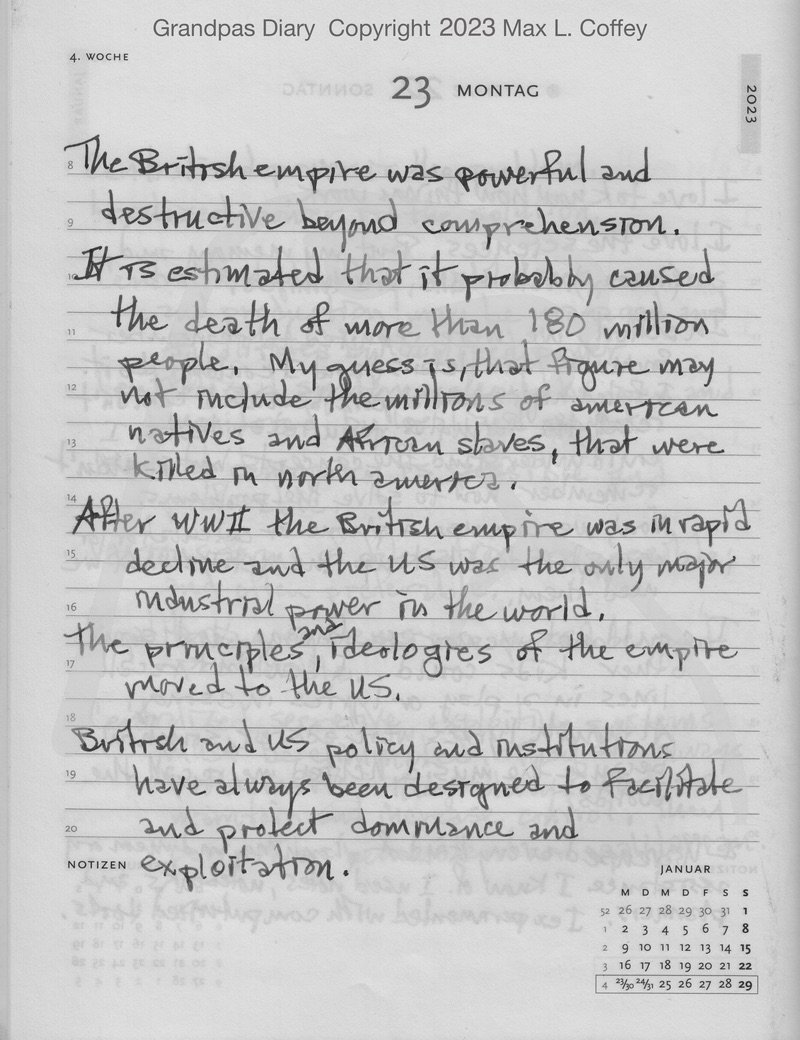 Grandpas Diary Copyright 2023 Max L. Coffey
4. WOCHE
23 MONTAG
2023
8 The British empire was powerful and
9 destructive beyond comprehension.
10 It is estimated that it probably caused
11 the death of more than 180 million
people. My guess is, that figure may
12 not include the millions of american
13 natives and African slaves, that were
killed in north america.
14 After WWII the British empire was in rapid
15 decline and the US was the only major
16 industrial power in the world.
The principles, and ideologies of the empire
17 moved to the US.
18 British and US policy and institutions
19 have always been designed to facilitate
20 and protect dominance and
NOTIZEN exploitation.
JANUAR
M D M D F S S
52 26 27 28 29 30 31 1
1 2 3 4 5 6 7 8
2 9 10 11 12 13 14 15
3 16 17 18 19 20 21 22
4 23/30 24/31 25 26 27 28 29